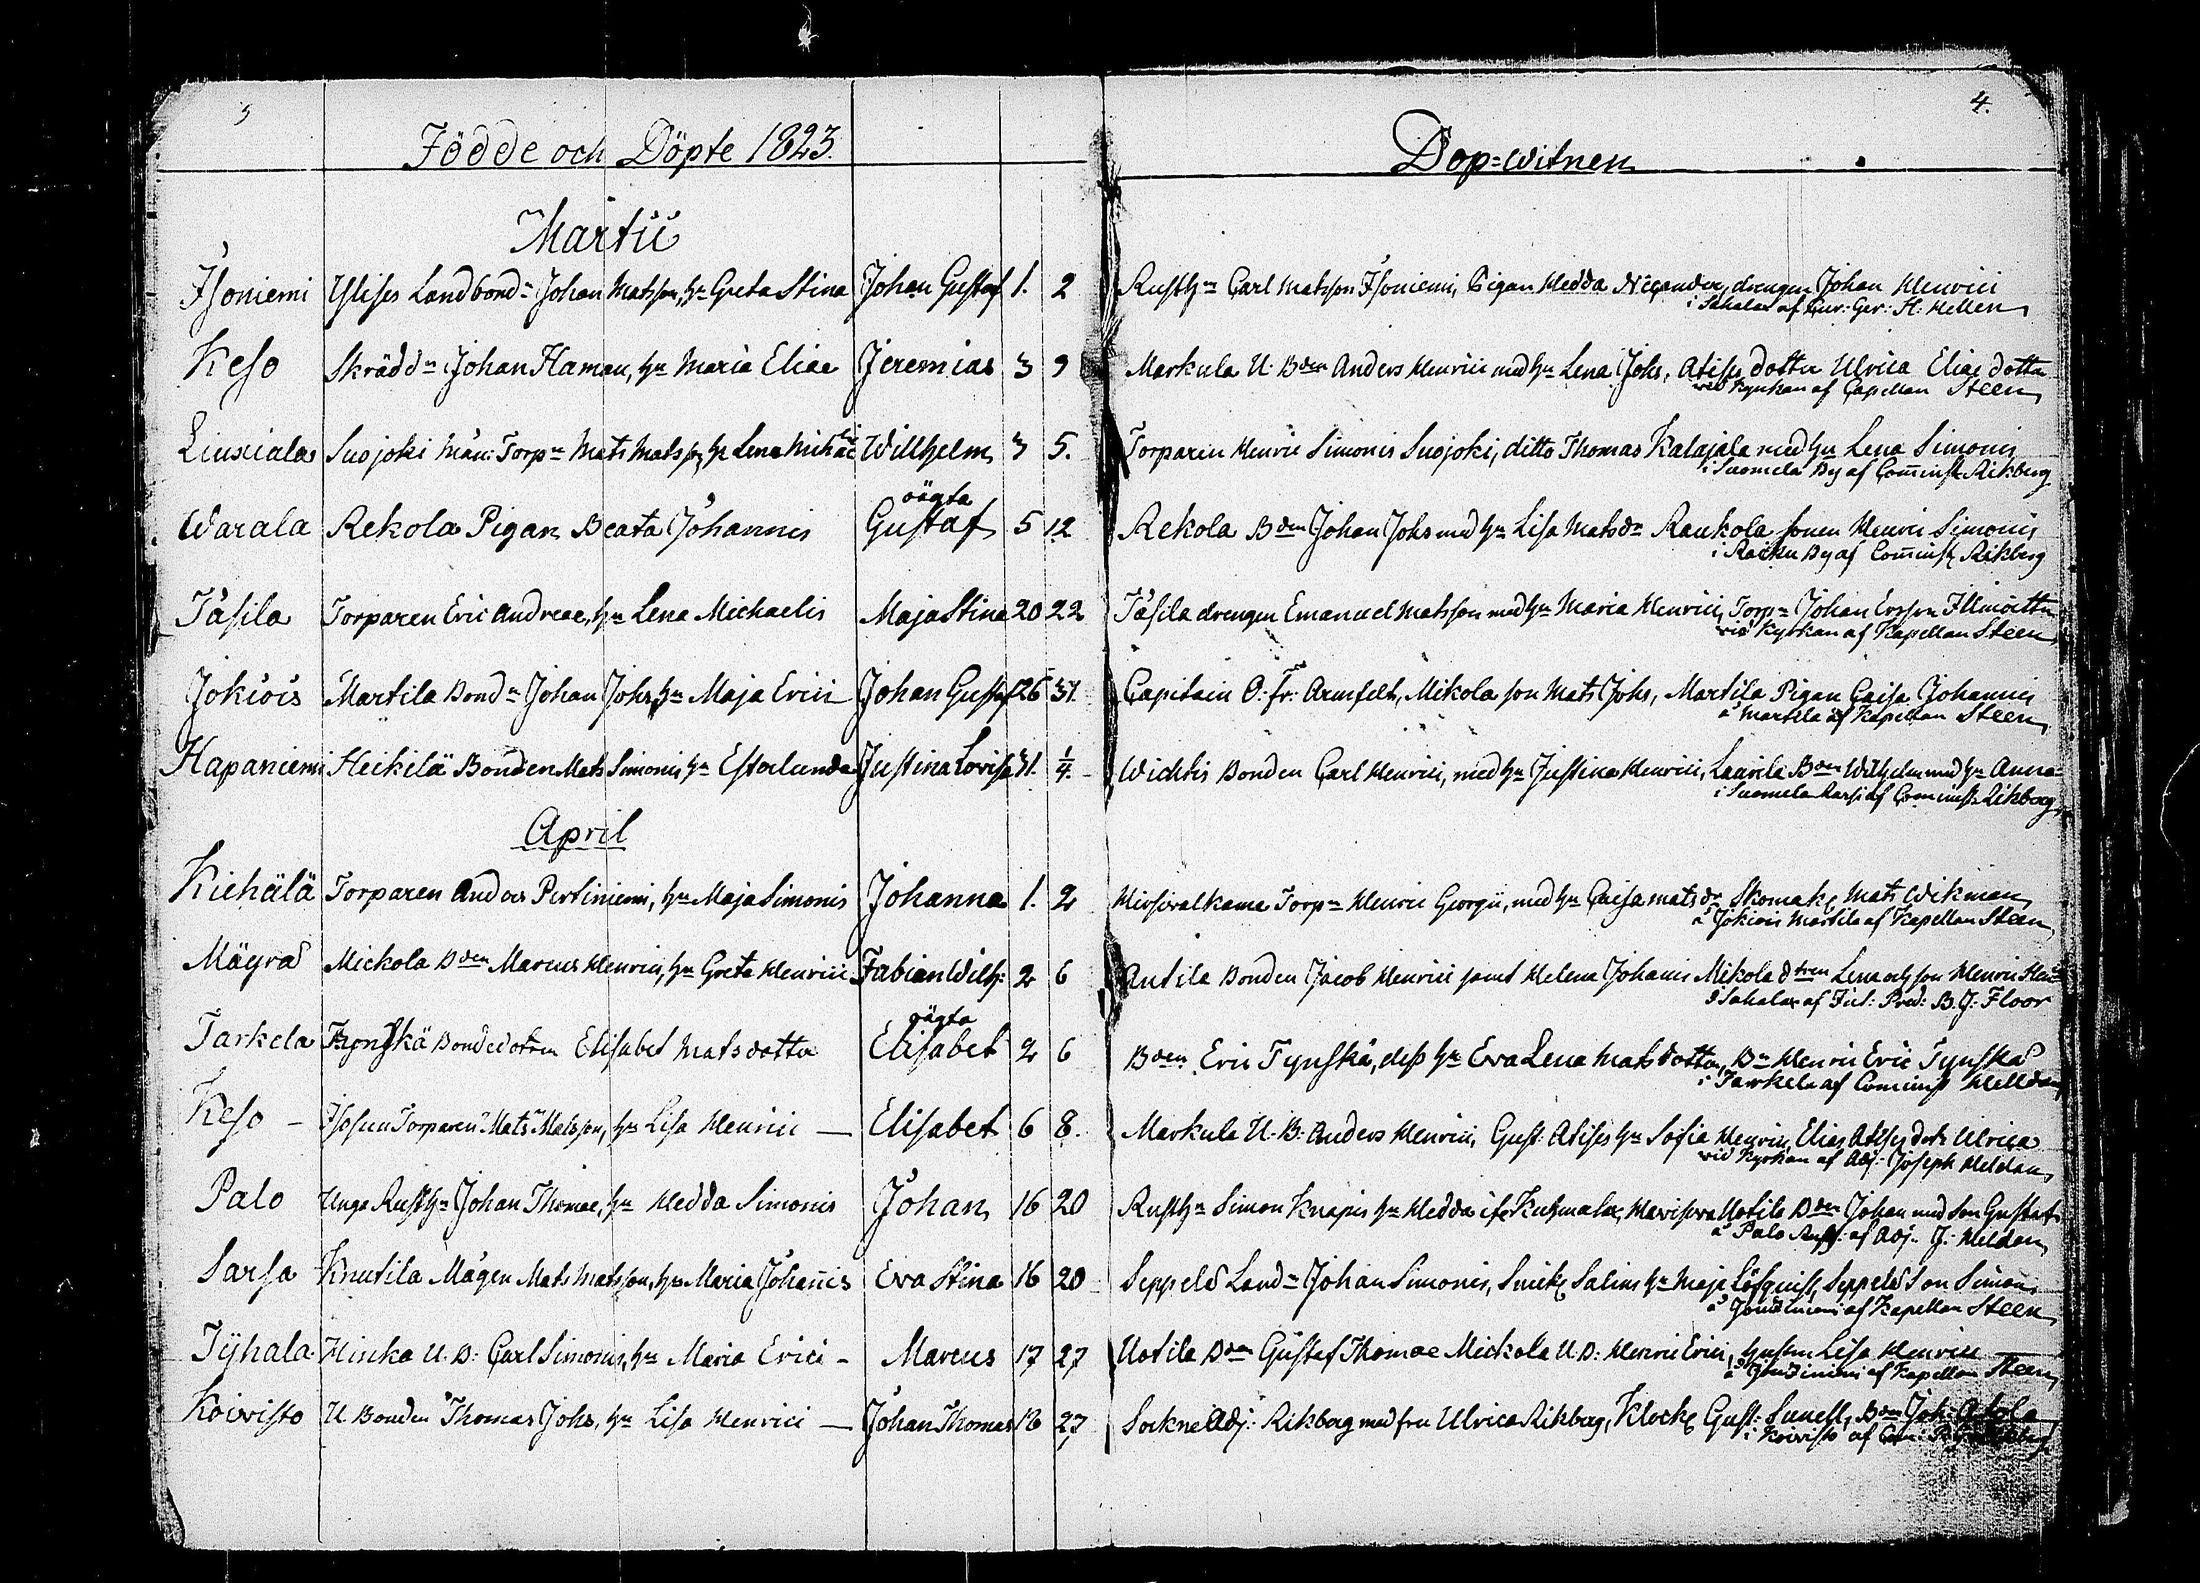 3
4.
Födde och Döpte 1823.
Dop=witnen
Martii
Isoniemi Ylises Landbond:n Johan Matsson, h:u Greta Stina Johan Gustaf 1. 2 Rusth:n Carl Matsson Isoniemi, Pigan Hedda Nicander, drengen Johan Henrici
i Sahalax af Cur: Ger: H: Hellen
Keso Skrädd:n Johan Haman, h:u Maria Eliae Jeremias 3 9 Markula U. Bden Anders Henrici med h:u Lena Johs, Atises dotter Ulrica Eliae dotter
vid kyrkan af Capellan Steen
Liuxiala Suojoki Torp:n Mats Matsson, h:u Lena Willhelm 3 5. Torparen Henric Simonis Suojoki, ditto Thomas Katajala med h:u Lena Simonis
i Suomela By af Cominist: Rikberg
oägta
Warala Rekola Pigan Beata Johannis Gustaf 5 12 Rekola Bden Johan Johs med h:u Lisa Matsdr Raukola sonen Henric Simonis
i Raiku By af Cominist: Rikberg
Täsila Torparen Eric Andreae, h:u Lena Michaelis Maja Stina 20 22 Täsila drengen Emanuel Matsson med h:u Maria Henrici, Torp:n Johan Ersson
vid Kyrkan af Kapellan Steen
Jokiois Martila Bond:n Johan Johs, h:u Maja Erici Johan Gustaf 26 31. Capitain O: Fr: Armfelt, Mikola son Mats Johs, Martila Pigan Caisa Johannis
å Martila af Kapellan Steen
Hapaniemi Heikilä Bonden Mats Simonis h:u Ester Justina Lovisa 31. 1/4. Wichtis Bonden Carl Henrici, med h:u Justina Henrici, Laurila Bden Wilhelm med h:u Anna
i Suomela af Cominist: Rikberg
April
Kiehälä Torparen Anders Pertiniemi, h:u Maja Simonis Johanna 1. 2 Hirsivalkama Torp:n Henric Georgii, med h:u Caisa Matsdr Skomak: Mats Wikman
å Jokiois Martila af Kapellan Steen
Mäyrä Mickola Bden Marcus Henrici, h:u Greta Henrici Fabian Wilh: 2 6 Antila Bonden Jacob Henrici samt Helena Johanis Mikola dtren Lena och son Henric
i Sahalax af Pred: B. J: Floor
oägta
Tarkela Bondedottren Elisabet Matsdotter Elisabet 2 6 Bden Eric Tynskä, dess h:u Eva Lena Matsdotter, B:n Henric Eric Tynskä
i Tarkela af Cominist Helldan
Keso – Torparen Mats Matsson, h:u Lisa Henrici — Elisabet 6 8. Markula U: B: Anders Henrici, Gust: Atises h:u Sofia Henrici, Elias Atises dotr Ulrica
vid Kyrkan af Adj: Joseph Heldan
Palo Unga Rusth:n Johan Thomae, h:u Hedda Simonis Johan 16 20 Rusth:n Simon Knapis h:u Hedda ifr Kuhmalax, Uotila Bden Johan med son Gustaf
å Palo Rusth: af Adj: J: Heldan
Sarsa Knutila Mågen Mats Matsson, h:u Maria Johanis Eva Stina 16 20 Seppelä Land:n Johan Simonis, Snick: Salins h:u Maja Löfquist, Seppelä Son Simon
af Kapellan Steen
Tyhala Hinka U. B: Carl Simonis, h:u Maria Erici – Marcus 17 27 Uotila Bden Gustaf Thomae Mickola U. B: Henric Erici, hustru Lisa Henrici
af Kapellan Steen
Koivisto U. Bonden Thomas Johs, h:u Lisa Henrici — Johan Thomas 18 27 Sockne Adj: Rikberg med fru Ulrica Rikberg, Klock: Gust: Sunell, Bden Joh:
i Koivisto af